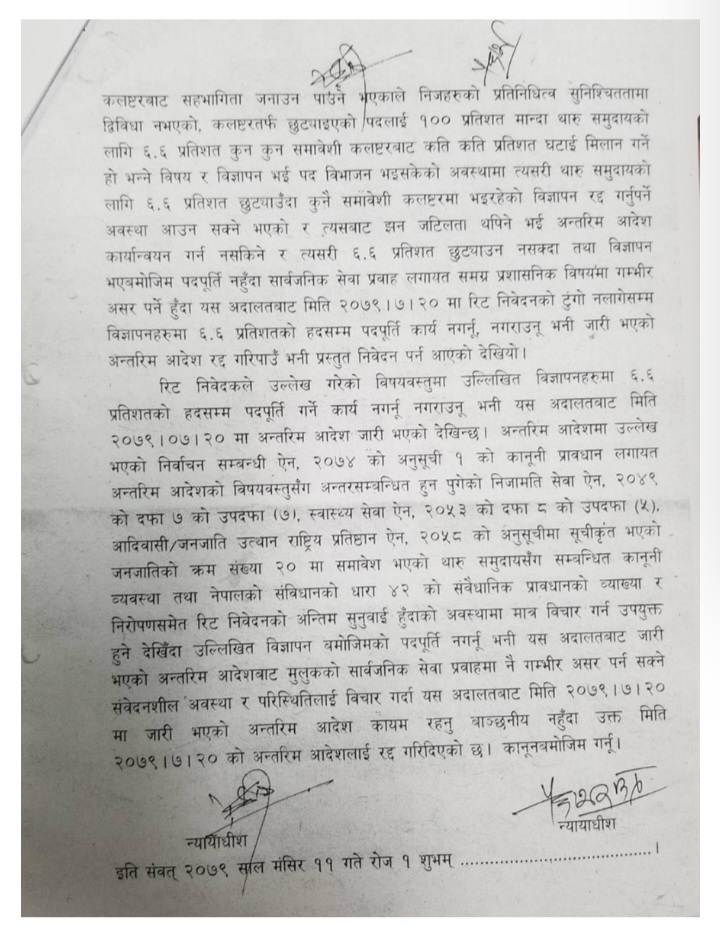 कलष्टरबाट सहभागिता जनाउन पाउने भएकाले निजहरुको प्रतिनिधित्व सुनिश्चिततामा
द्विविधा नभएको, कलष्टरतर्फ छुट्याइएको पदलाई १०० प्रतिशत मान्दा थारु समुदायको
लागि ६.६ प्रतिशत कुन कुन समावेशी कलष्टरबाट कति कति प्रतिशत घटाई मिलान गर्ने
हो भन्ने विषय र विज्ञापन भई पद विभाजन भइसकेको अवस्थामा त्यसरी थारु समुदायको
लागि ६.६ प्रतिशत छुट्याउँदा कुनै समावेशी कलष्टरमा भइरहेको विज्ञापन रद्द गर्नुपर्ने
अवस्था आउन सक्ने भएको र त्यसबाट झन जटिलता थपिने भई अन्तरिम आदेश
कार्यान्वयन गर्न नसकिने र त्यसरी ६.६ प्रतिशत छुट्याउन नसक्दा तथा विज्ञापन
भएबमोजिम पदपूर्ति नहुँदा सार्वजनिक सेवा प्रवाह लगायत समग्र प्रशासनिक विषयमा गम्भीर
असर पर्ने हुँदा यस अदालतबाट मिति २०७९।७।२० मा रिट निवेदनको टुंगो नलागेसम्म
विज्ञापनहरुमा ६.६ प्रतिशतको हदसम्म पदपूर्ति कार्य नगर्नू, नगराउनू भनी जारी भएको
अन्तरिम आदेश रद्द गरिपाउँ भनी प्रस्तुत निवेदन पर्न आएको देखियो।
रिट निवेदकले उल्लेख गरेको विषयवस्तुमा उल्लिखित विज्ञापनहरुमा ६.६
प्रतिशतको हदसम्म पदपूर्ति गर्ने कार्य नगर्नू नगराउनू भनी यस अदालतबाट मिति
२०७९।०७।२० मा अन्तरिम आदेश जारी भएको देखिन्छ। अन्तरिम आदेशमा उल्लेख
भएको निर्वाचन सम्बन्धी ऐन, २०७४ को अनुसूची १ को कानूनी प्रावधान लगायत
अन्तरिम आदेशको विषयवस्तुसँग अन्तरसम्बन्धित हुन पुगेको निजामति सेवा ऐन, २०४९
को दफा ७ को उपदफा (७), स्वास्थ्य सेवा ऐन, २०५३ को दफा ८ को उपदफा (५),
आदिवासी/जनजाति उत्थान राष्ट्रिय प्रतिष्ठान ऐन, २०५८ को अनुसूचीमा सूचीकृत भएको
जनजातिको क्रम संख्या २० मा समावेश भएको थारु समुदायसँग सम्बन्धित कानूनी
व्यवस्था तथा नेपालको संविधानको धारा ४२ को संवैधानिक प्रावधानको व्याख्या र
निरोपणसमेत रिट निवेदनको अन्तिम सुनुवाई हुँदाको अवस्थामा मात्र विचार गर्न उपयुक्त
हुने देखिँदा उल्लिखित विज्ञापन बमोजिमको पदपूर्ति नगर्नू भनी यस अदालतबाट जारी
भएको अन्तरिम आदेशबाट मुलुकको सार्वजनिक सेवा प्रवाहमा नै गम्भीर असर पर्न सक्ने
संवेदनशील अवस्था र परिस्थितिलाई विचार गर्दा यस अदालतबाट मिति २०७९।७।२०
मा जारी भएको अन्तरिम आदेश कायम रहनु वाञ्छनीय नहुँदा उक्त मिति
२०७९।७।२० को अन्तरिम आदेशलाई रद्द गरिदिएको छ। कानूनबमोजिम गर्नू।
न्यायाधीश
न्यायाधीश
इति संवत् २०७९ साल मंसिर ११ गते रोज १ शुभम् ......................................।